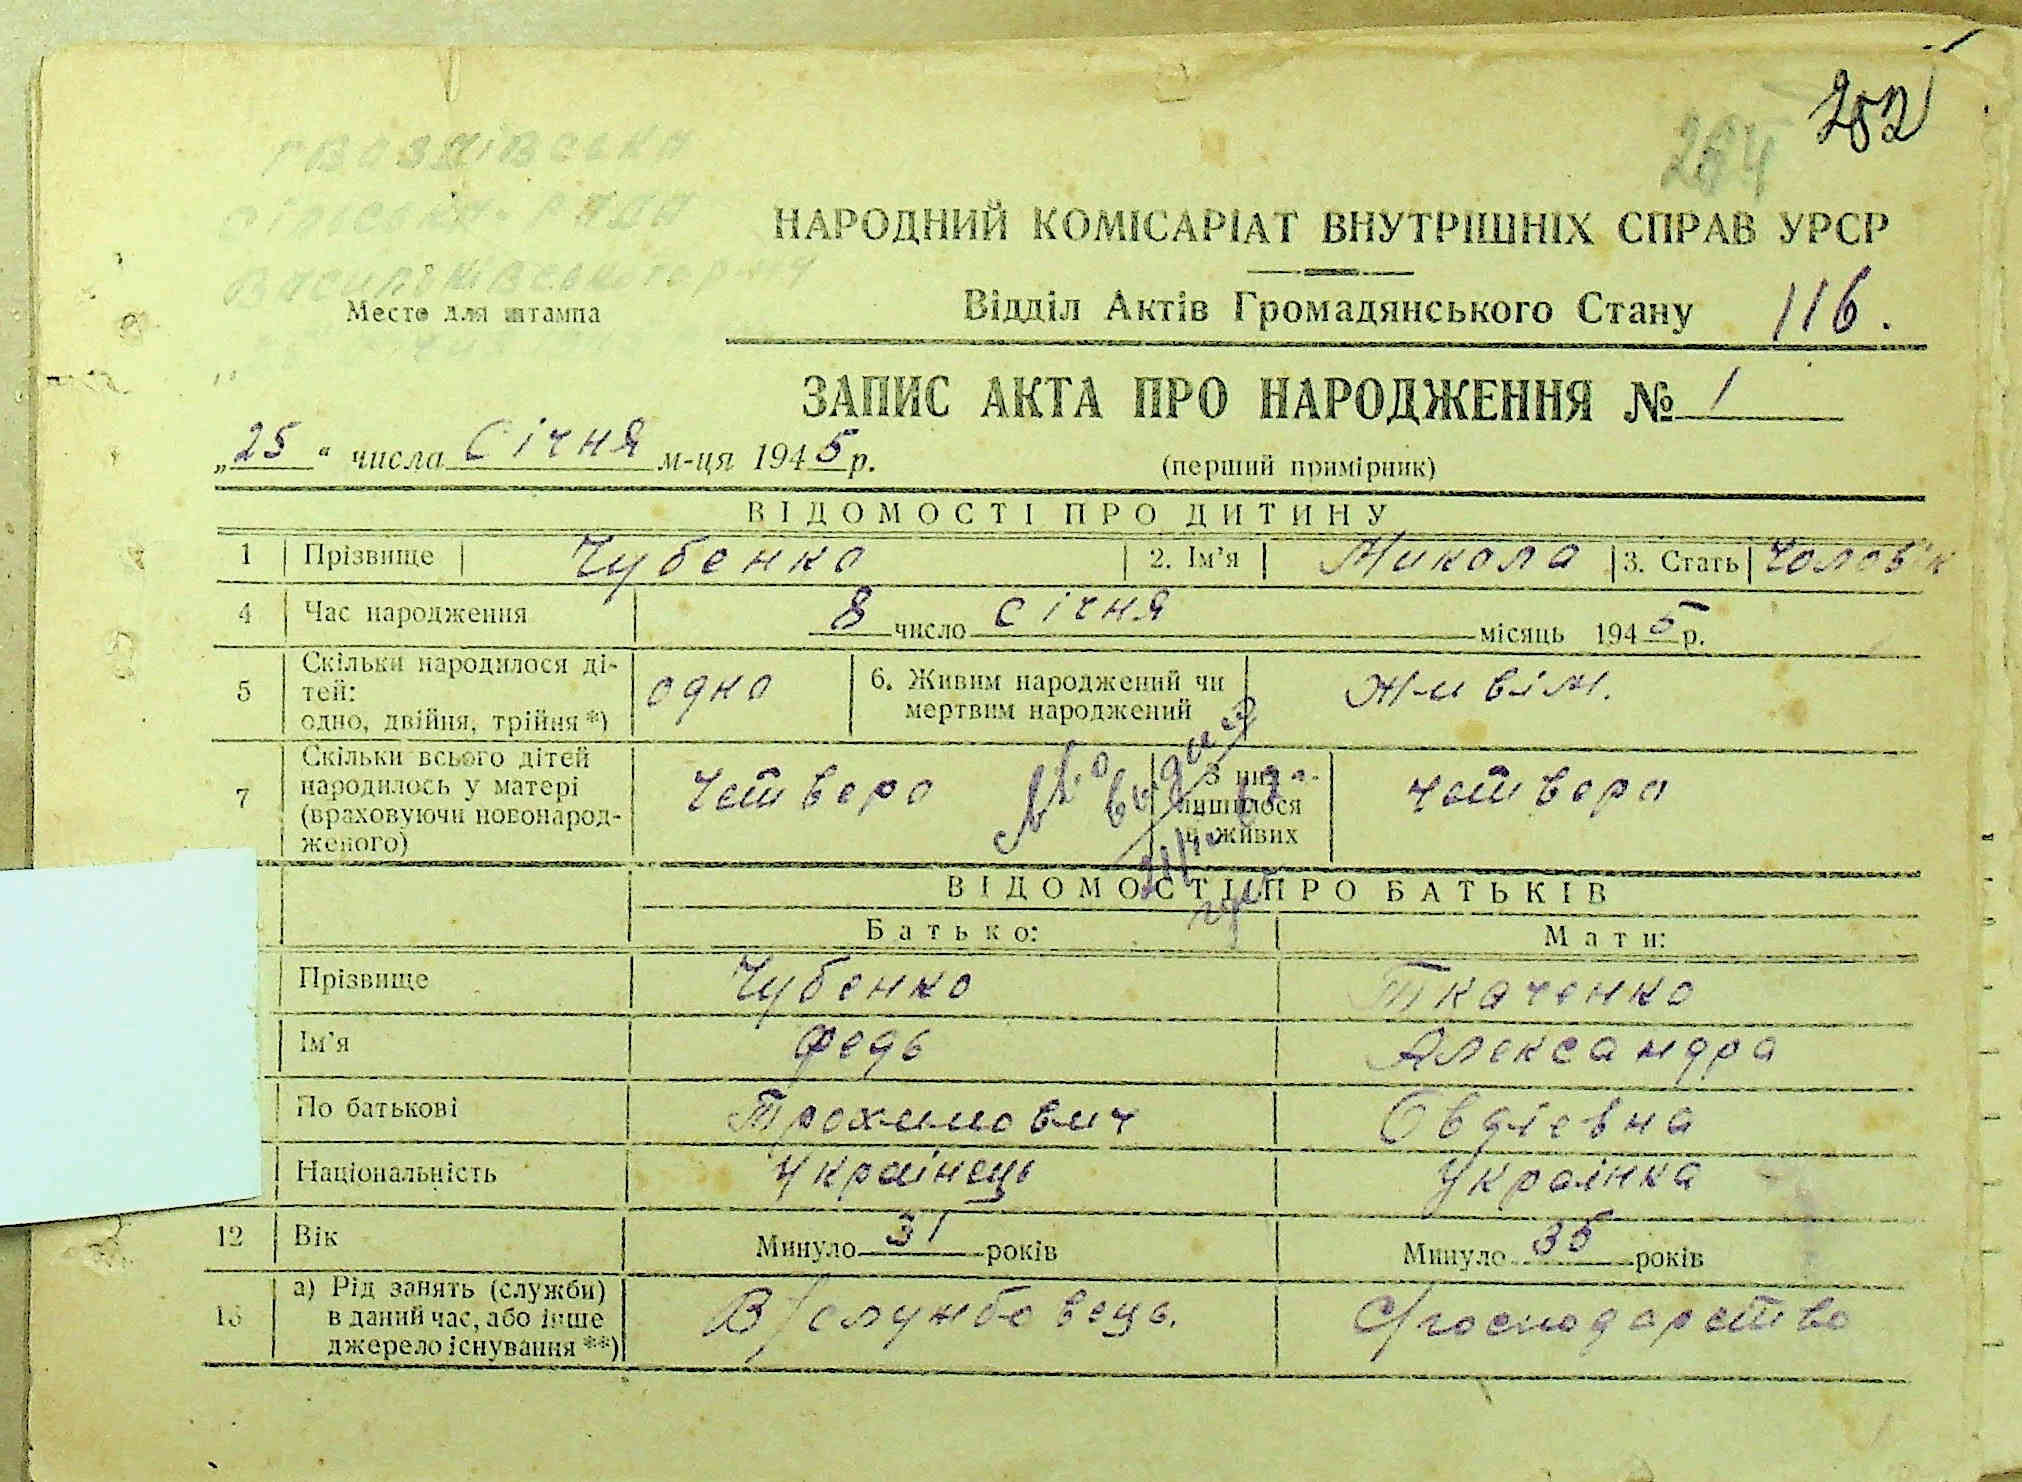 252
284
Гвоздівська
сільська-рада
Васильківського р-ну
НАРОДНИЙ КОМІСАРІАТ ВНУТРІШНІХ СПРАВ УРСР
Место для штампа
Відділ Актів Громадянського Стану 116.
ЗАПИС АКТА ПРО НАРОДЖЕННЯ № 1
„25“ числа Січня м-ця 1945 р.
(перший примірник)
ВІДОМОСТІ ПРО ДИТИНУ
1 Прізвище Чубенко 2. Ім'я Микола 3. Стать Чоловік
4 Час народження 8 число Січня місяць 1945 р.
5 Скільки народилося ді-
тей:
одно, двійня, трійня *) одно 6. Живим народжений чи
мертвим народжений живім.
7 Скільки всього дітей
народилось у матері
(враховуючи новонарод-
женого) Четверо З них за-
лишилося
в живих четверо
ВІДОМОСТІ ПРО БАТЬКІВ
Батько: Мати:
Прізвище Чубенко Ткаченко
Ім'я Федь Александра
По батькові Трохимович Овдіевна
Національність Українець Українка
12 Вік Минуло 31 років Минуло 35 років
13 а) Рід занять (служби)
в даний час, або інше
джерело існування **) В/службовець. С/господарство